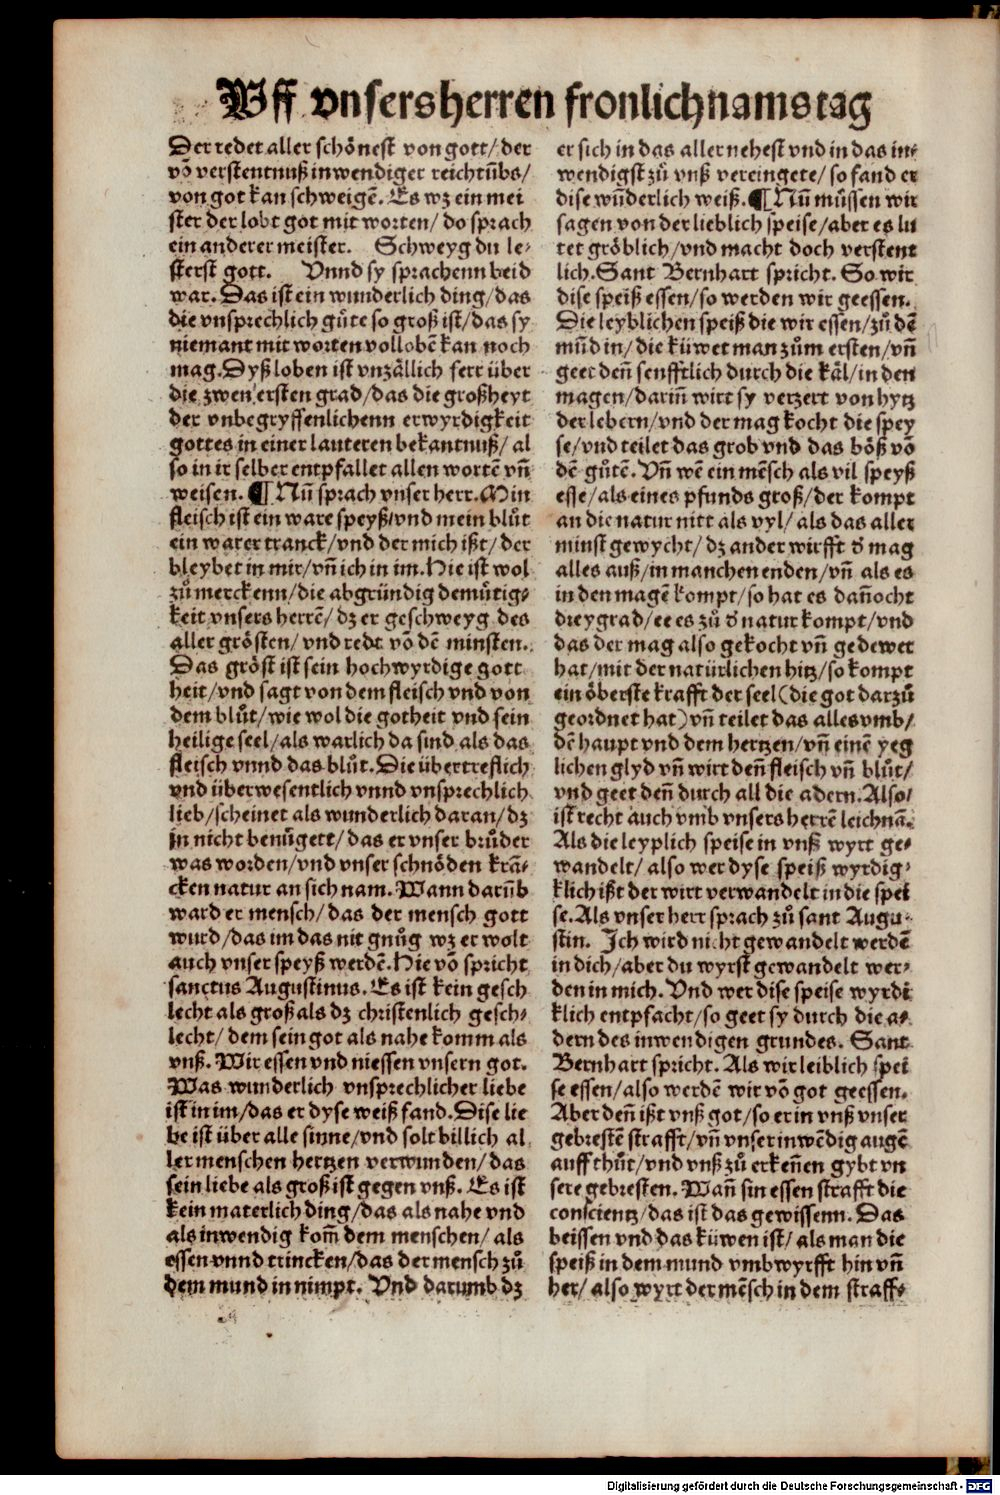 Uff vnsers herren fronlichnams tag
Der redet aller schönest von gott/ der
vō verstentnuß inwendiger reichtůbs/
von got kan schweigē. Es wz ein mei
ster der lobt got mit worten/ do sprach
ein anderer meister. Schweyg du le⸗
sterst gott. Vnnd sy sprachenn beid
war. Das ist ein wunderlich ding/ das
die vnsprechlich gůte so groß ist/ das sy
niemant mit worten vollobē kan noch
mag. Dyß loben ist vnzällich ferr über
die zwen ersten grad/ das die großheyt
der vnbegryffenlichenn erwyrdigkeit
gottes in einer lauteren bekantnuß/ al
so in ir selber entpfallet allen wortē vn̄
weisen. ¶ Nū sprach vnser herr. Min
fleisch ist ein ware speyß/ vnd mein blůt
ein warer tranck/ vnd der mich ißt/ der
bleybet in mir/ vn̄ ich in im. Hie ist wol
zů merckenn/ die abgründig demůtig⸗
keit vnsers herrē/ dz er geschweyg des
aller grösten/ vnd redt vō dē minsten.
Das gröst ist sein hochwyrdige gott
heit/ vnd sagt von dem fleisch vnd von
dem blůt/ wie wol die gotheit vnd sein
heilige seel/ als warlich da sind als das
fleisch vnnd das blůt. Die übertreflich
vnd überwesentlich vnnd vnsprechlich
lieb/ scheinet als wunderlich daran/ dz
in nicht benůgett/ das er vnser brůder
was worden/ vnd vnser schnöden krā⸗
cken natur an sich nam. Wann darūb
ward er mensch/ das der mensch gott
wurd/ das im das nit gnůg wz er wolt
auch vnser speyß werdē. Hie vō spricht
sanctus Augustinus. Es ist kein gesch
lecht als groß als dz christenlich gesch⸗
lecht/ dem sein got als nahe komm als
vnß. Wir essen vnd niessen vnsern got.
Was wunderlich vnsprechlicher liebe
ist in im/ das er dyse weiß fand. Dise lie
be ist über alle sinne/ vnd solt billich al
ler menschen hertzen verwunden/ das
sein liebe als groß ist gegen vnß. Es ist
kein materlich ding/ das als nahe vnd
als inwendig kom̄ dem menschen/ als
essen vnnd trincken/ das der mensch zů
dem mund in nimpt. Vnd darumb dz
er sich in das aller nehest vnd in das in⸗
wendigst zů vnß vereingete/ so fand er
dise wūderlich weiß. ¶ Nū müssen wir
sagen von der lieblich speise/ aber es lu
tet gröblich/ vnd macht doch verstent
lich. Sant Bernhart spricht. So wir
dise speiß essen/ so werden wir geessen.
Die leyblichen speiß die wir essen/ zů dē
mūd in/ die küwet man zům ersten/ vn̄
geet den̄ senfftlich durch die käl/ in den
magen/ darin̄ wirt sy verzert von hytz
der lebern/ vnd der mag kocht die spey
se/ vnd teilet das grob vnd das böß vō
dē gůtē. Vn̄ wē ein mēsch als vil speyß
esse/ als eines pfunds groß/ der kompt
an die natur nitt als vyl/ als das aller
minst gewycht/ dz ander wirfft d̕ mag
alles auß/ in manchen enden/ vn̄ als es
in den magē kompt/ so hat es dan̄ocht
drey grad/ ee es zů d̕ natur kompt/ vnd
das der mag also gekocht vn̄ gedewet
hat/ mit der natürlichen hitz/ so kompt
ein öberste krafft der seel (die got darzů
geordnet hat) vn̄ teilet das alles vmb/
dē haupt vnd dem hertzen/ vn̄ einē yeg
lichen glyd vn̄ wirt den̄ fleisch vn̄ blůt/
vnd geet den̄ durch all die adern. Also/
ist recht auch vmb vnsers herrē leichnā.
Als die leyplich speise in vnß wyrt ge⸗
wandelt/ also wer dyse speiß wyrdig⸗
klich ißt der wirt verwandelt in die spei
se. Als vnser herr sprach zů sant Augu⸗
stin. Ich wird nicht gewandelt werdē
in dich/ aber du wyrst gewandelt wer⸗
den in mich. Vnd wer dise speise wyrdi
klich entpfacht/ so geet sy durch die a⸗
dern des inwendigen grundes. Sant
Bernhart spricht. Als wir leiblich spei
se essen/ also werdē wir vō got geessen.
Aber den̄ ißt vnß got/ so er in vnß vnser
gebrestē strafft/ vn̄ vnser inwēdig augē
auff thůt/ vnd vnß zů erken̄en gybt vn
sere gebresten. Wan̄ sin essen strafft die
conscientz/ das ist das gewissenn. Das
beissen vnd das küwen ist/ als man die
speiß in dem mund vmbwyrfft hin vn̄
her/ also wyrt der mēsch in dem straff⸗
Digitalisierung gefördert durch die Deutsche Forschungsgemeinschaft - DFG